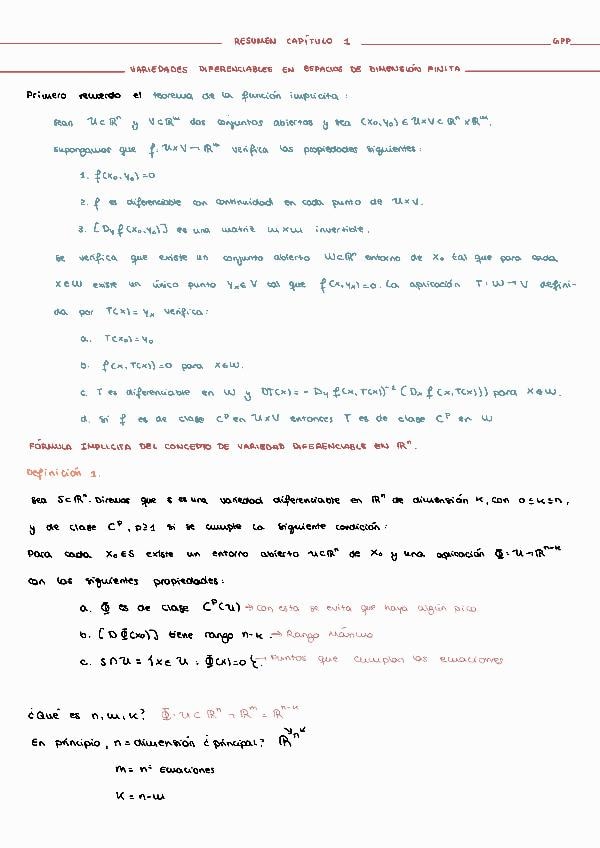 RESUMEN CAPÍTULO 1 GPP
VARIEDADES DIFERENCIABLES EN ESPACIOS DE DIMENSIÓN FINITA
Primero recuerdo el teorema de la función implícita:
Sean U⊂ℝⁿ y V⊂ℝᵐ dos conjuntos abiertos y sea (x₀,y₀)∈U×V⊂ℝⁿ×ℝᵐ.
Supongamos que f:U×V→ℝᵐ verifica las propiedades siguientes:
1. f(x₀,y₀)=0
2. f es diferenciable con continuidad en cada punto de U×V.
3. [D_y f(x₀,y₀)] es una matriz m×m invertible.
Se verifica que existe un conjunto abierto W⊂ℝⁿ entorno de x₀ tal que para cada
x∈W existe un único punto yₓ∈V tal que f(x,yₓ)=0. La aplicación T:W→V defini-
da por T(x)=yₓ verifica:
a. T(x₀)=y₀
b. f(x,T(x))=0 para x∈W.
c. T es diferenciable en W y DT(x)=-D_y f(x,T(x))⁻¹(Dₓ f(x,T(x))) para x∈W.
d. Si f es de clase Cᵖ en U×V entonces T es de clase Cᵖ en W
FÓRMULA IMPLICITA DEL CONCEPTO DE VARIEDAD DIFERENCIABLE EN ℝⁿ.
Definición 1.
Sea S⊂ℝⁿ. Diremos que S es una variedad diferenciable en ℝⁿ de dimensión k, con 0≤k≤n,
y de clase Cᵖ, p≥1 si se cumple la siguiente condición:
Para cada x₀∈S existe un entorno abierto U⊂ℝⁿ de x₀ y una aplicación Φ:U→ℝⁿ⁻ᵏ
con las siguientes propiedades:
a. Φ es de clase Cᵖ(U) → con esta se evita que haya algún pico
b. [DΦ(x₀)] tiene rango n-k. → Rango Máximo
c. S∩U={x∈U : Φ(x)=0}. → Puntos que cumplan las ecuaciones
¿Qué es n,m,k? Φ:U⊂ℝⁿ→ℝᵐ=ℝⁿ⁻ᵏ
En principio, n=dimensión ¿principal?
m= nº Ecuaciones
k= n-m